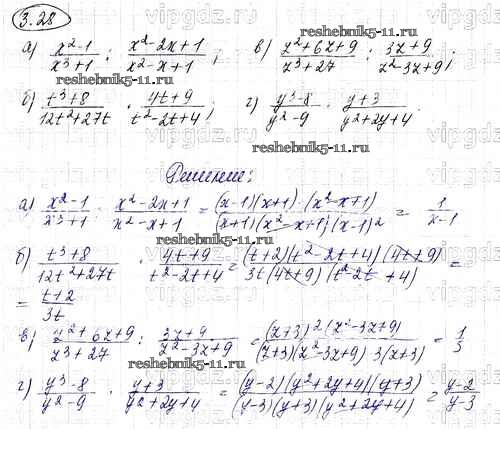 3.28
а) x²-1 / x³+1 : x²-2x+1 / x²-x+1 ; в) z²+6z+9 / z³+27 : 3z+9 / z²-3z+9 ;
reshebnik5-11.ru reshebnik5-11.ru
б) t³+8 / 12t²+27t · 4t+9 / t²-2t+4 ; г) y³-8 / y²-9 · y+3 / y²+2y+4 .
reshebnik5-11.ru
Решение:
а) x²-1 / x³+1 : x²-2x+1 / x²-x+1 = (x-1)(x+1)·(x²-x+1) / (x+1)(x²-x+1)(x-1)² = 1 / x-1
reshebnik5-11.ru
б) t³+8 / 12t²+27t · 4t+9 / t²-2t+4 = (t+2)(t²-2t+4)(4t+9) / 3t(4t+9)(t²-2t+4) =
= t+2 / 3t
в) z²+6z+9 / z³+27 : 3z+9 / z²-3z+9 = (z+3)²(z²-3z+9) / (z+3)(z²-3z+9) 3(z+3) = 1 / 3
reshebnik5-11.ru
г) y³-8 / y²-9 · y+3 / y²+2y+4 = (y-2)(y²+2y+4)(y+3) / (y-3)(y+3)(y²+2y+4) = y-2 / y-3
reshebnik5-11.ru
vipgdz.ru